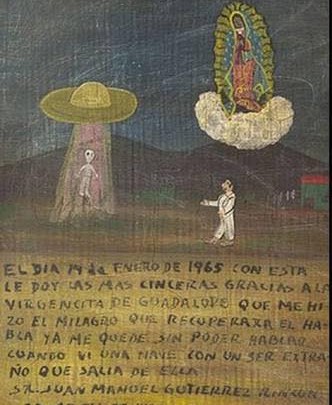 EL DIA 14 de ENERO DE 1965 CON ESTA
LE DOY LAS MAS CINCERAS GRACIAS A LA
VIRGENCITA DE GUADALOPE QUE ME HI
ZO EL MILAGRO QUE RECUPERARA EL HA
BLA YA ME QUEDE SIN PODER HABLAR
CUANDO VI UNA NAVE CON UN SER EXTRA
ÑO QUE SALIA DE ELLA
SR. JUAN MANOEL GUTIERREZ RINCON